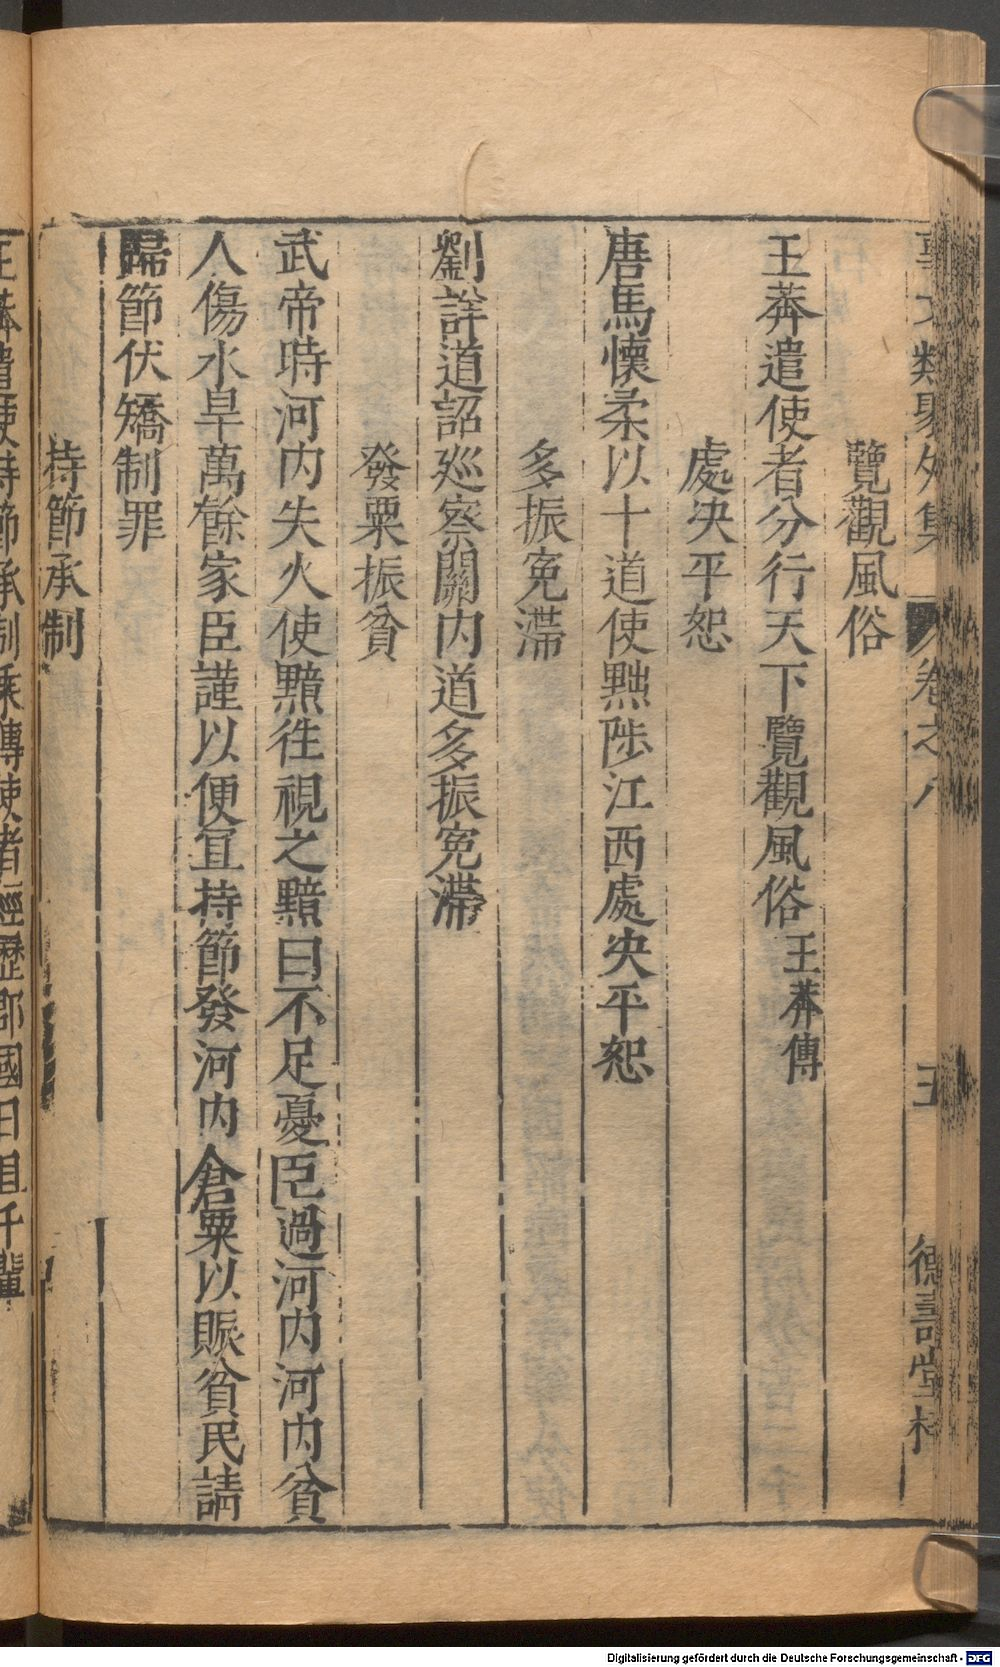 事文類聚外集 卷之八 五 德壽堂梓
覽觀風俗
王莽遣使者分行天下覽觀風俗王莽傳
處决平恕
唐馬懷柔以十道使黜陟江西處决平恕
多振寃滯
劉詳道詔廵察關内道多振寃滯
發粟振貧
武帝時河内失火使黯往視之黯曰不足憂臣過河内河内貧
人傷水旱萬餘家臣謹以便冝持節發河内倉粟以賑貧民請
歸節伏矯制罪
持節承制
王莽遣使持節承制乘傳使者經歷郡國日且千輩
Digitalisierung gefördert durch die Deutsche Forschungsgemeinschaft - DFG